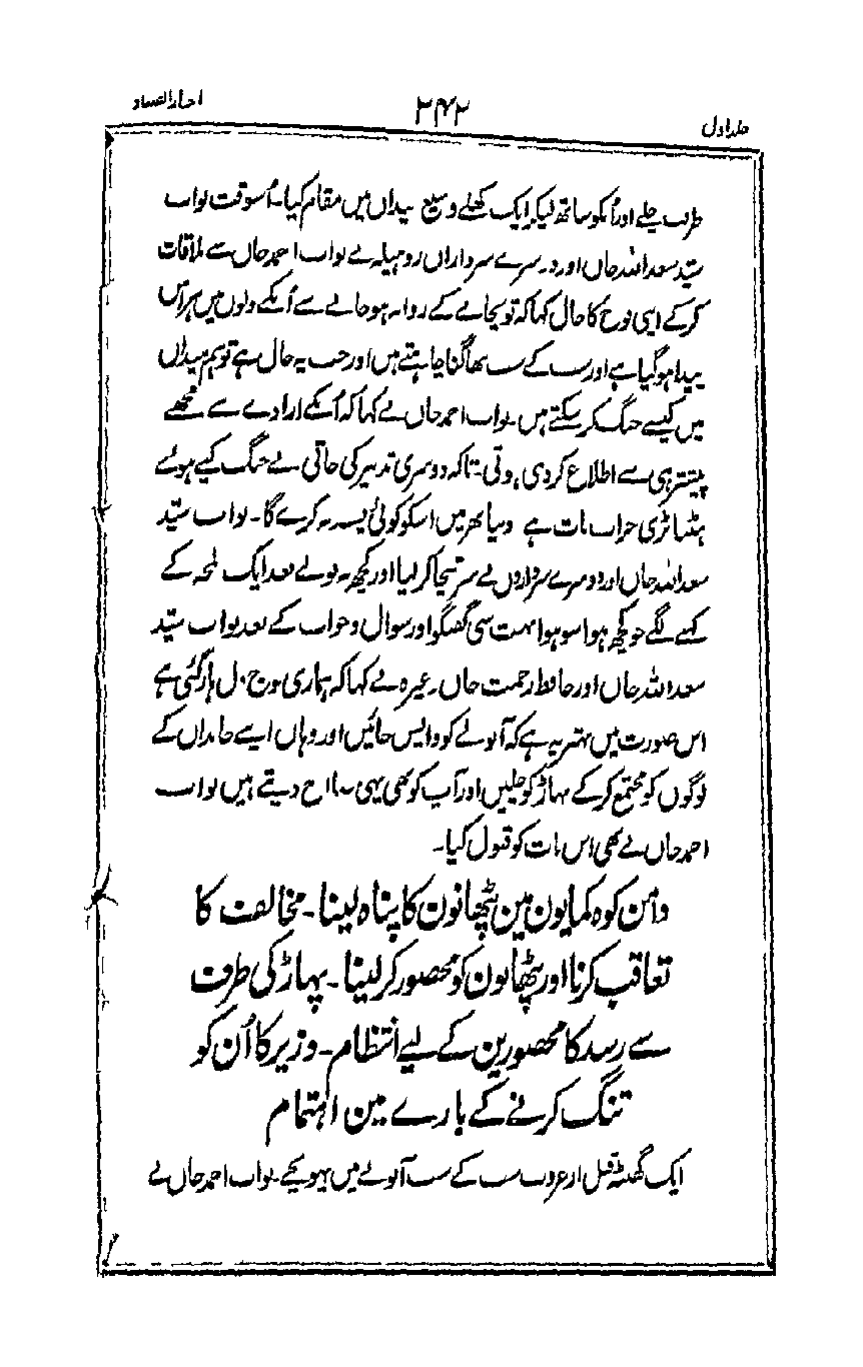 اخبار الصنادید
۲۴۲
جلد اول
طرف چلے اور اُنکو ساتھ لیکر ایک کھلے وسیع میدان میں مقام کیا۔ اُسوقت نواب
سیّد سعد اللہ خان اور دوسرے سرداران روہیلہ نے نواب احمد خان سے ملاقات
کرکے اپنی فوج کا حال کہا کہ توپخانے کے روانہ ہو جانے سے اُنکے دلوں میں ہراس
پیدا ہو گیا ہے اور سب کے سب بھاگنا چاہتے ہیں اور جب یہ حال ہے تو ہم میدان
میں کیسے جنگ کر سکتے ہیں۔ نواب احمد خان نے کہا کہ اُنکے ارادے سے مجھے
پیشتر ہی سے اطلاع کر دی ہوتی۔ تاکہ دوسری تدبیر کی جاتی بے جنگ کیے ہوئے
ہٹنا بڑی خراب بات ہے دنیا بھر میں اسکو کوئی پسند نہ کرے گا۔ نواب سیّد
سعد اللہ خان اور دوسرے سرداروں نے سر نیچا کر لیا اور کچھ نہ بولے بعد ایک لمحہ کے
کہنے لگے جو کچھ ہوا سو ہوا بہت سی گفتگو اور سوال و جواب کے بعد نواب سیّد
سعد اللہ خان اور حافظ رحمت خان وغیرہ نے کہا کہ ہماری فوج دل ہار گئی ہے
اس صورت میں بہتر یہ ہے کہ آنولے کو واپس جائیں اور وہاں اپنے خاندان کے
لوگوں کو مجتمع کرکے پہاڑ کو چلیں اور آپ کو بھی یہی صلاح دیتے ہیں نواب
احمد خان نے بھی اس بات کو قبول کیا۔
دامن کوہ کمایون مین پٹھانون کا پناہ لینا۔ مخالفت کا
تعاقب کرنا اور پٹھانون کو محصور کر لینا۔ پہاڑ کی طرف
سے رسد کا محصورین کے لیے انتظام۔ وزیر کا اُن کو
تنگ کرنے کے بارے مین اہتمام
ایک گھنٹہ قبل از غروب سب کے سب آنولے میں پہونچے۔ نواب احمد خان نے